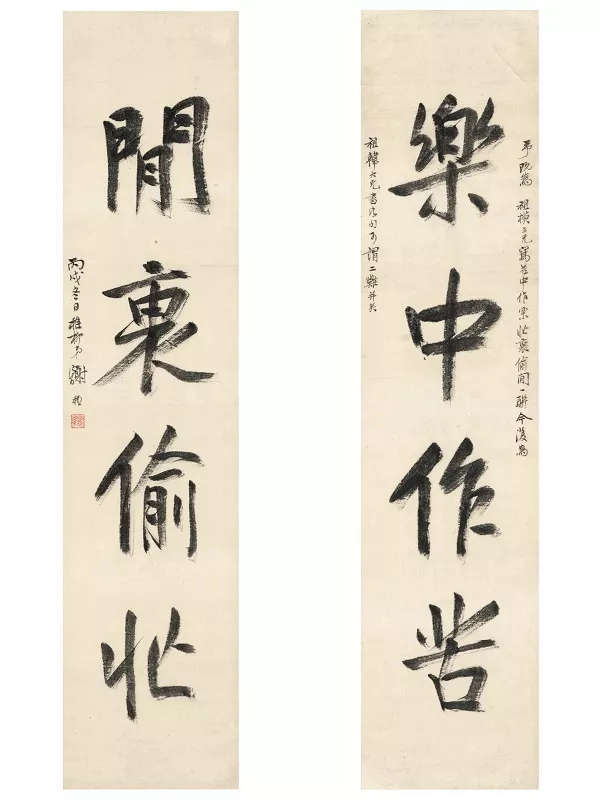 弟既為 祖模三兄寫苦中作樂忙裏偷閒一聯今復為
樂中作苦
祖韓大兄書句可謂二難并矣
閒裏偷忙
丙戌冬日稚柳弟謝稚